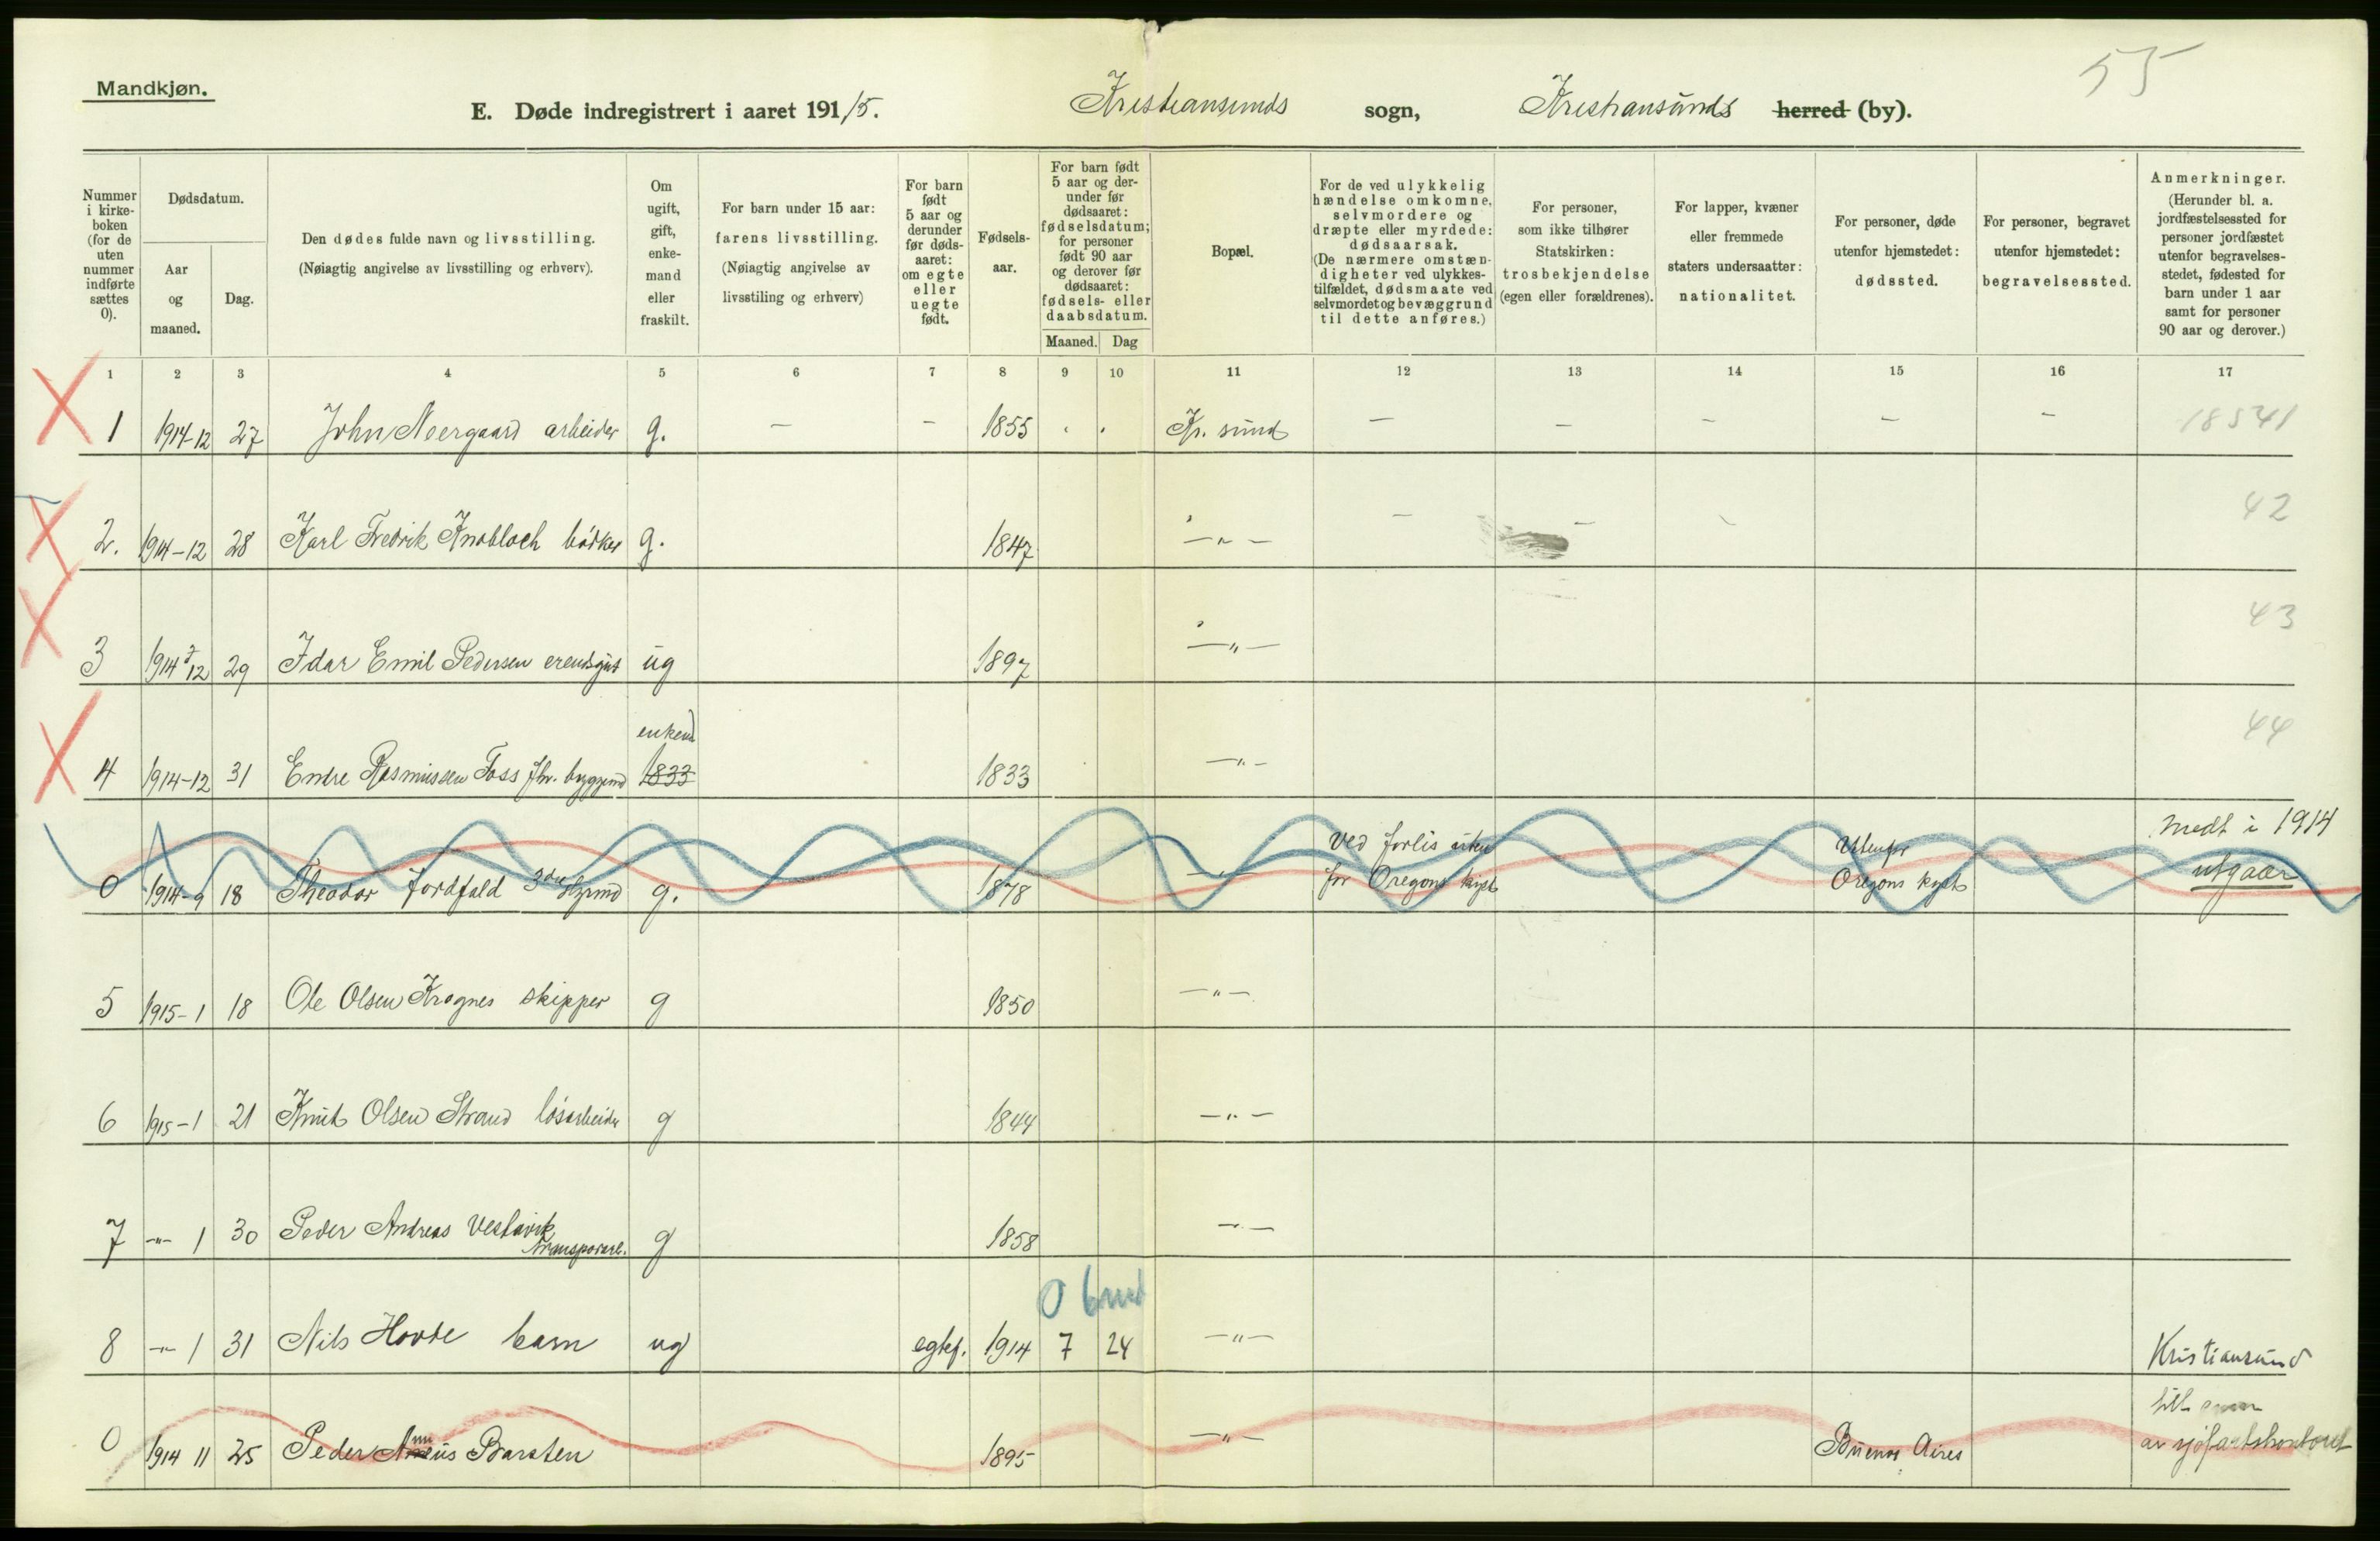 55
Mandkjøn.
E. Døde indregistrert i aaret 1915. Kristiansunds sogn, Kristiansunds herred (by).
Nummer i kirkeboken (for de uten nummer indførte sættes 0).
Dødsdatum.
Aar og maaned.
Dag.
Den dødes fulde navn og livsstilling.
(Nøiagtig angivelse av livsstilling og erhverv).
Om ugift, gift, enkemand eller fraskilt.
For barn under 15 aar: farens livsstilling. (Nøiagtig angivelse av livsstiling og erhverv)
For barn født 5 aar og derunder før dødsaaret: om egte eller uegte født.
Fødselsaar.
For barn født 5 aar og derunder før dødsaaret: fødselsdatum; for personer født 90 aar og derover før dødsaaret: fødsels- eller daabsdatum.
Maaned. Dag
Bopæl.
For de ved ulykkelig hændelse omkomne, selvmordere og dræpte eller myrdede: dødsaarsak. (De nærmere omstændigheter ved ulykkestilfældet, dødsmaate ved selvmordet og bevæggrund til dette anføres.)
For personer, som ikke tilhører Statskirken: trosbekjendelse (egen eller forældrenes).
For lapper, kvæner eller fremmede staters undersaatter: nationalitet.
For personer, døde utenfor hjemstedet: dødssted.
For personer, begravet utenfor hjemstedet: begravelsessted.
Anmerkninger. (Herunder bl. a. jordfæstelsessted for personer jordfæstet utenfor begravelsesstedet, fødested for barn under 1 aar samt for personer 90 aar og derover.)
1 2 3 4 5 6 7 8 9 10 11 12 13 14 15 16 17
1 1914-12 27 John Neergaard arbeider g. - - 1855 . . Kr. sund - - - - - 18541
2. 1914-12 28 Karl Fredrik Knobloch bødker g. 1847 -"- - - - 42
3 1914 12 29 Idar Emil Pedersen erendsgut ug 1897 -"- 43
enkem
4 1914-12 31 Endre Rasmussen Foss fhv. byggem 1833 1833 -"- 44
Ved forlis uten Utenfor medt i 1914
0 1914-9 18 Theodor Jordfald 3die styrmd g. 1878 -"- for Oregons kyst Oregons kyst utgaar
5 1915-1 18 Ole Olsen Krognes skipper g 1850 -"-
6 1915-1 21 Knut Olsen Strand løsarbeider g 1844 -"-
7 -"- 1 30 Peder Andreas Vestavik transportarb. g 1858 -"-
0 6 md
8 -"- 1 31 Nils Hovde barn ug egtef. 1914 7 24 -"- Kristiansund
0 1914 11 25 Peder Barsten 1895 -"- Buenos Aires
av sjøfartskontoret